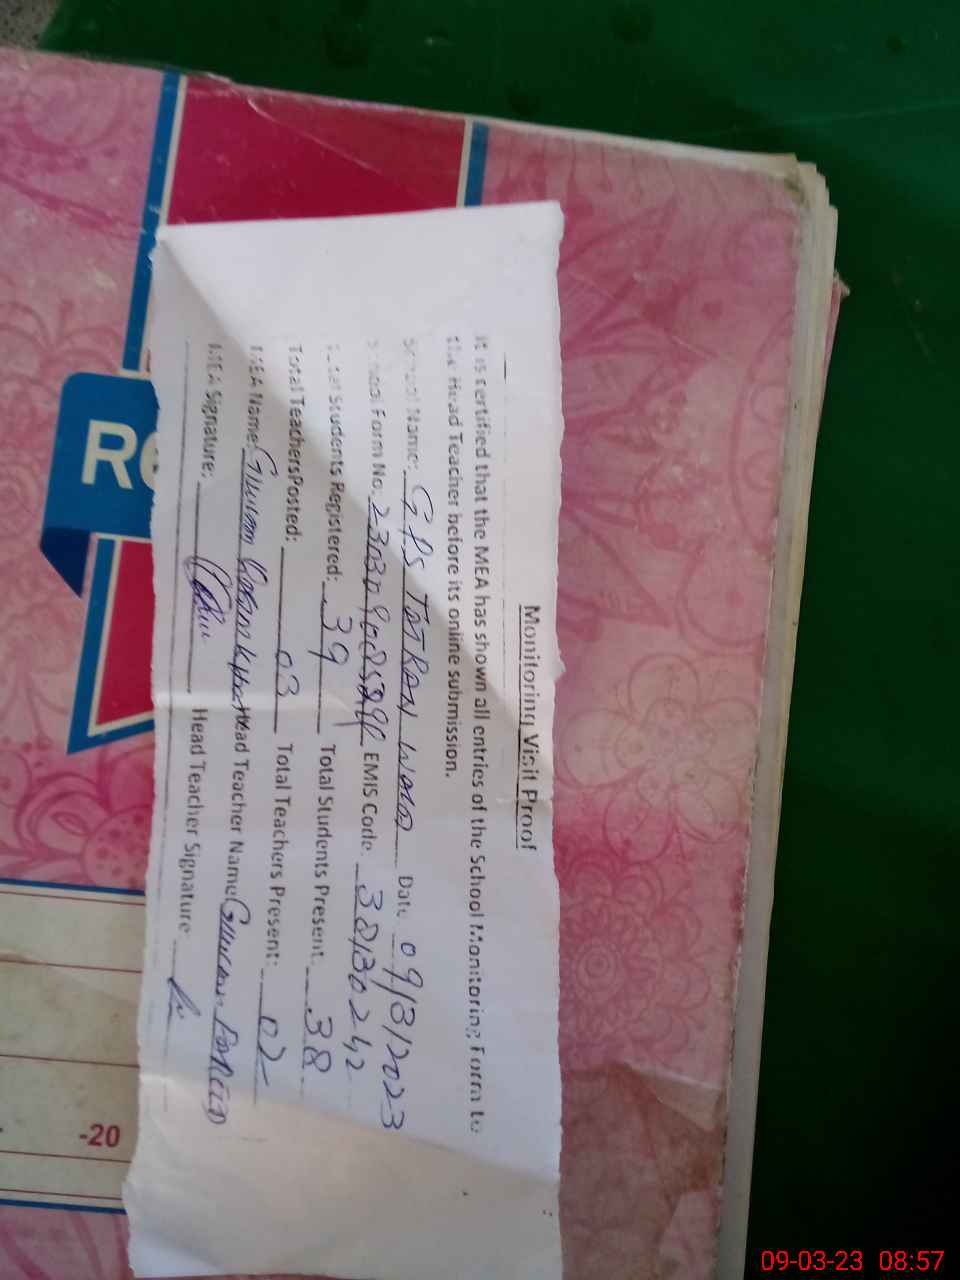 Monitoring Visit Proof
It is certified that the MEA has shown all entries of the School Monitoring Form to
the Head Teacher before its online submission.
School Name: GPS TATRAN WALA Date 09/3/2023
School Form No. EMIS Code. 38130242
Total Students Registered: 39 Total Students Present. 38
Total Teachers Posted: 03 Total Teachers Present: 02
MEA Name: Ghulam Head Teacher Name
MEA Signature: Head Teacher Signature:
Re
-20
09-03-23 08:57